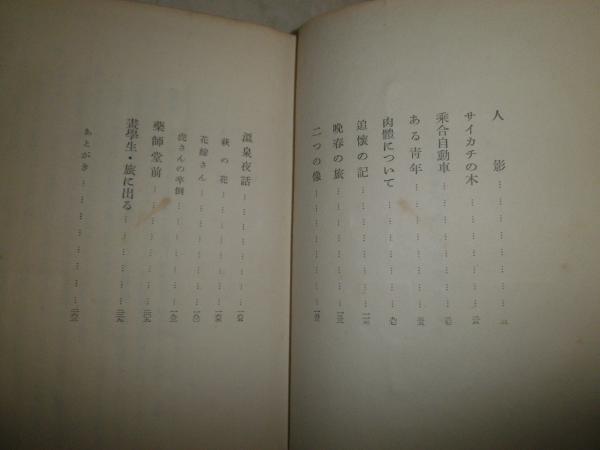 人影
サイカチの木
乘合自動車
ある青年
肉體について
追懷の記
晩春の旅
二つの像
溫泉夜話
萩の花
花嫁さん
虎さんの卒倒
藥師堂前
畫學生・旅に出る
あとがき